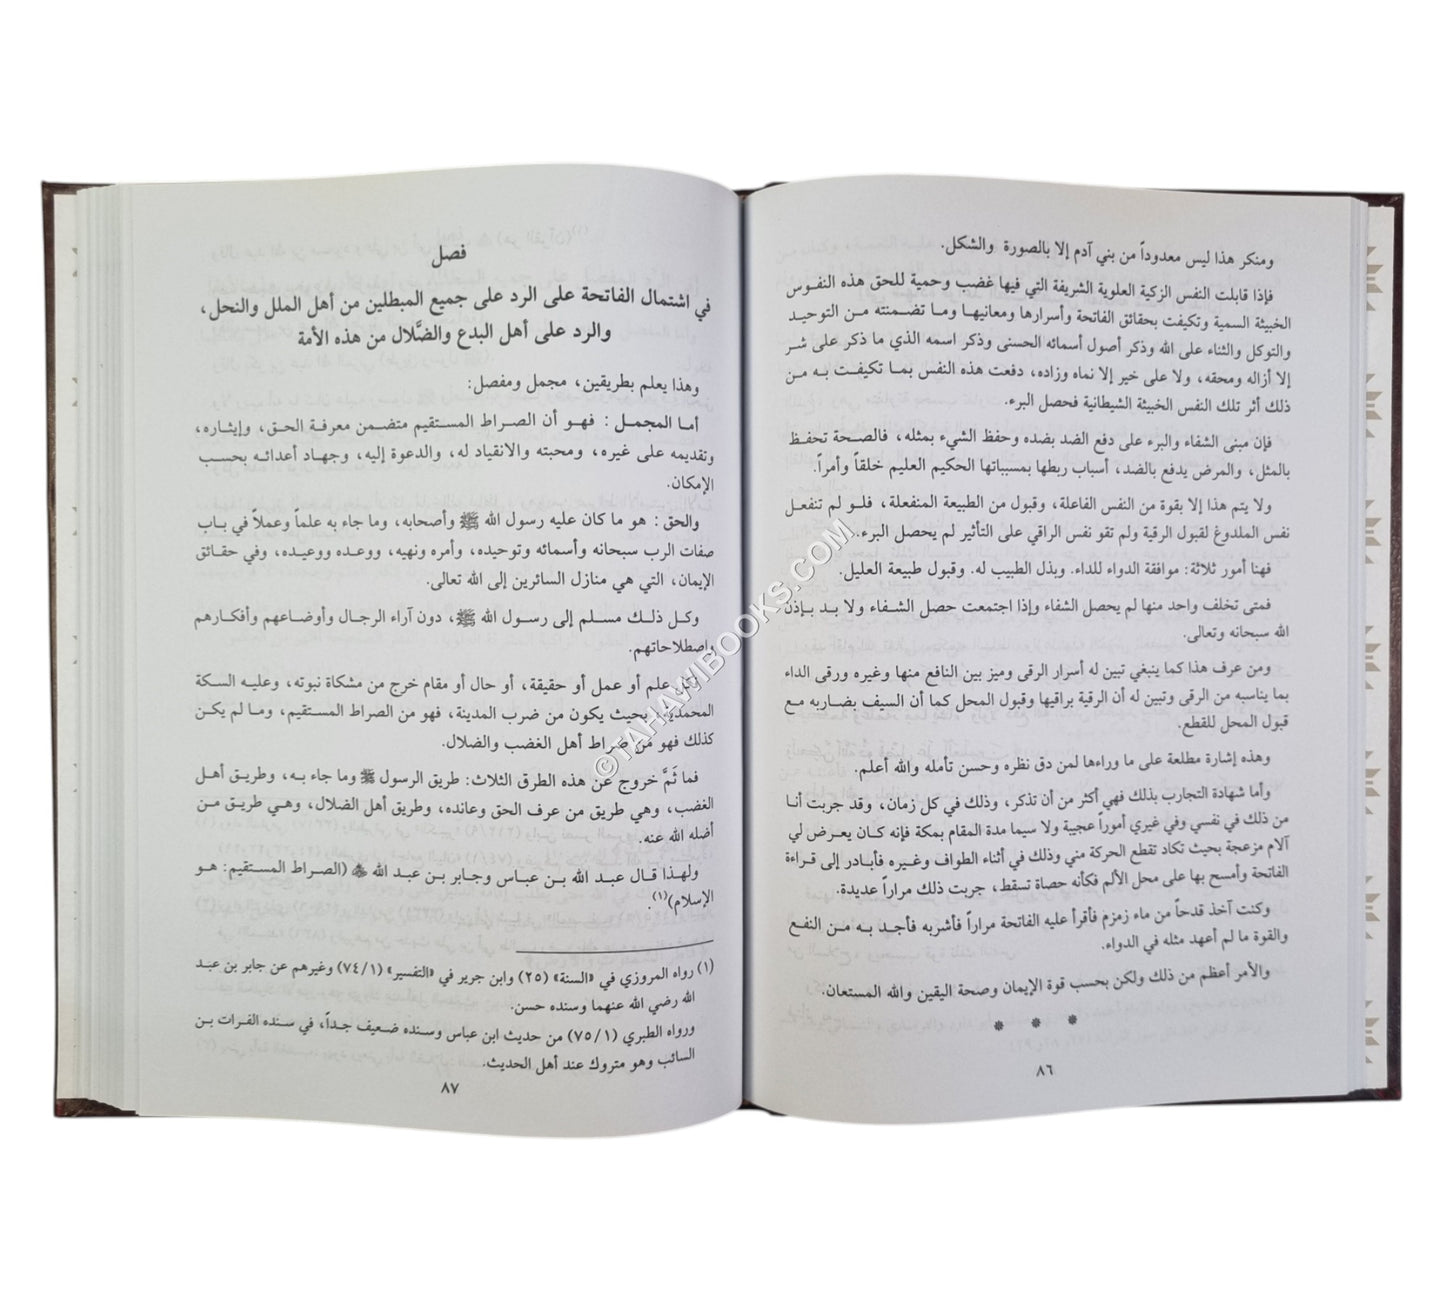 ومنكر هذا ليس معدوداً من بني آدم إلا بالصورة والشكل.
فإذا قابلت النفس الزكية العلوية الشريفة التي فيها غضب وحمية للحق هذه النفوس
الخبيثة السمية وتكيفت بحقائق الفاتحة وأسرارها ومعانيها وما تضمنته من التوحيد
والتوكل والثناء على الله وذكر أصول أسمائه الحسنى وذكر اسمه الذي ما ذكر على شر
إلا أزاله ومحقه، ولا على خير إلا نماه وزاده، دفعت هذه النفس بما تكيفت به من
ذلك أثر تلك النفس الخبيثة الشيطانية فحصل البرء.
فإن مبنى الشفاء والبرء على دفع الضد بضده وحفظ الشيء بمثله، فالصحة تحفظ
بالمثل، والمرض يدفع بالضد، أسباب ربطها بمسبباتها الحكيم العليم خلقاً وأمراً.
ولا يتم هذا إلا بقوة من النفس الفاعلة، وقبول من الطبيعة المنفعلة، فلو لم تنفعل
نفس الملدوغ لقبول الرقية ولم تقو نفس الراقي على التأثير لم يحصل البرء.
فهنا أمور ثلاثة: موافقة الدواء للداء. وبذل الطبيب له. وقبول طبيعة العليل.
فمتى تخلف واحد منها لم يحصل الشفاء وإذا اجتمعت حصل الشفاء ولا بد بإذن
الله سبحانه وتعالى.
ومن عرف هذا كما ينبغي تبين له أسرار الرقى وميز بين النافع منها وغيره ورقى الداء
بما يناسبه من الرقى وتبين له أن الرقية براقيها وقبول المحل كما أن السيف بضاربه مع
قبول المحل للقطع.
وهذه إشارة مطلعة على ما وراءها لمن دق نظره وحسن تأمله والله أعلم.
وأما شهادة التجارب بذلك فهي أكثر من أن تذكر، وذلك في كل زمان، وقد جربت أنا
من ذلك في نفسي وفي غيري أموراً عجيبة ولا سيما مدة المقام بمكة فإنه كان يعرض لي
آلام مزعجة بحيث تكاد تقطع الحركة مني وذلك في أثناء الطواف وغيره فأبادر إلى قراءة
الفاتحة وأمسح بها على محل الألم فكأنه حصاة تسقط، جربت ذلك مراراً عديدة.
وكنت آخذ قدحاً من ماء زمزم فأقرأ عليه الفاتحة مراراً فأشربه فأجد به من النفع
والقوة ما لم أعهد مثله في الدواء.
والأمر أعظم من ذلك ولكن بحسب قوة الإيمان وصحة اليقين والله المستعان.
* * *
٨٦
فصل
في اشتمال الفاتحة على الرد على جميع المبطلين من أهل الملل والنحل،
والرد على أهل البدع والضَّلال من هذه الأمة
وهذا يعلم بطريقين، مجمل ومفصل:
أما المجمل: فهو أن الصراط المستقيم متضمن معرفة الحق، وإيثاره،
وتقديمه على غيره، ومحبته والانقياد له، والدعوة إليه، وجهاد أعدائه بحسب
الإمكان.
والحق: هو ما كان عليه رسول الله ﷺ وأصحابه، وما جاء به علماً وعملاً في باب
صفات الرب سبحانه وأسمائه وتوحيده، وأمره ونهيه، ووعده ووعيده، وفي حقائق
الإيمان، التي هي منازل السائرين إلى الله تعالى.
وكل ذلك مسلم إلى رسول الله ﷺ، دون آراء الرجال وأوضاعهم وأفكارهم
واصطلاحاتهم.
فكل علم أو عمل أو حقيقة، أو حال أو مقام خرج من مشكاة نبوته، وعليه السكة
المحمدية، بحيث يكون من ضرب المدينة، فهو من الصراط المستقيم، وما لم يكن
كذلك فهو من صراط أهل الغضب والضلال.
فما ثَمَّ خروج عن هذه الطرق الثلاث: طريق الرسول ﷺ وما جاء به، وطريق أهل
الغضب، وهي طريق من عرف الحق وعانده، وطريق أهل الضلال، وهي طريق من
أضله الله عنه.
ولهذا قال عبد الله بن عباس وجابر بن عبد الله ﷺ (الصراط المستقيم: هو
الإسلام)(١).
(١) رواه المروزي في «السنة» (٢٥) وابن جرير في «التفسير» (٧٤/١) وغيرهم عن جابر بن عبد
الله رضي الله عنهما وسنده حسن.
ورواه الطبري (٧٥/١) من حديث ابن عباس وسنده ضعيف جداً، في سنده الفرات بن
السائب وهو متروك عند أهل الحديث.
٨٧
©TAHAWIBOOKS.COM